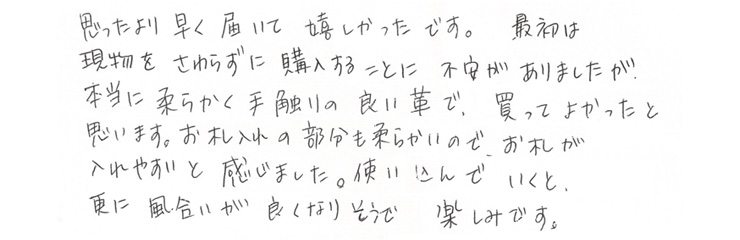 思ったより早く届いて嬉しかったです。最初は
現物をさわらずに購入することに不安がありましたが、
本当に柔らかく手触りの良い革で、買ってよかったと
思います。お札入れの部分も柔らかいので、お札が
入れやすいと感じました。使い込んでいくと、
更に風合いが良くなりそうで楽しみです。